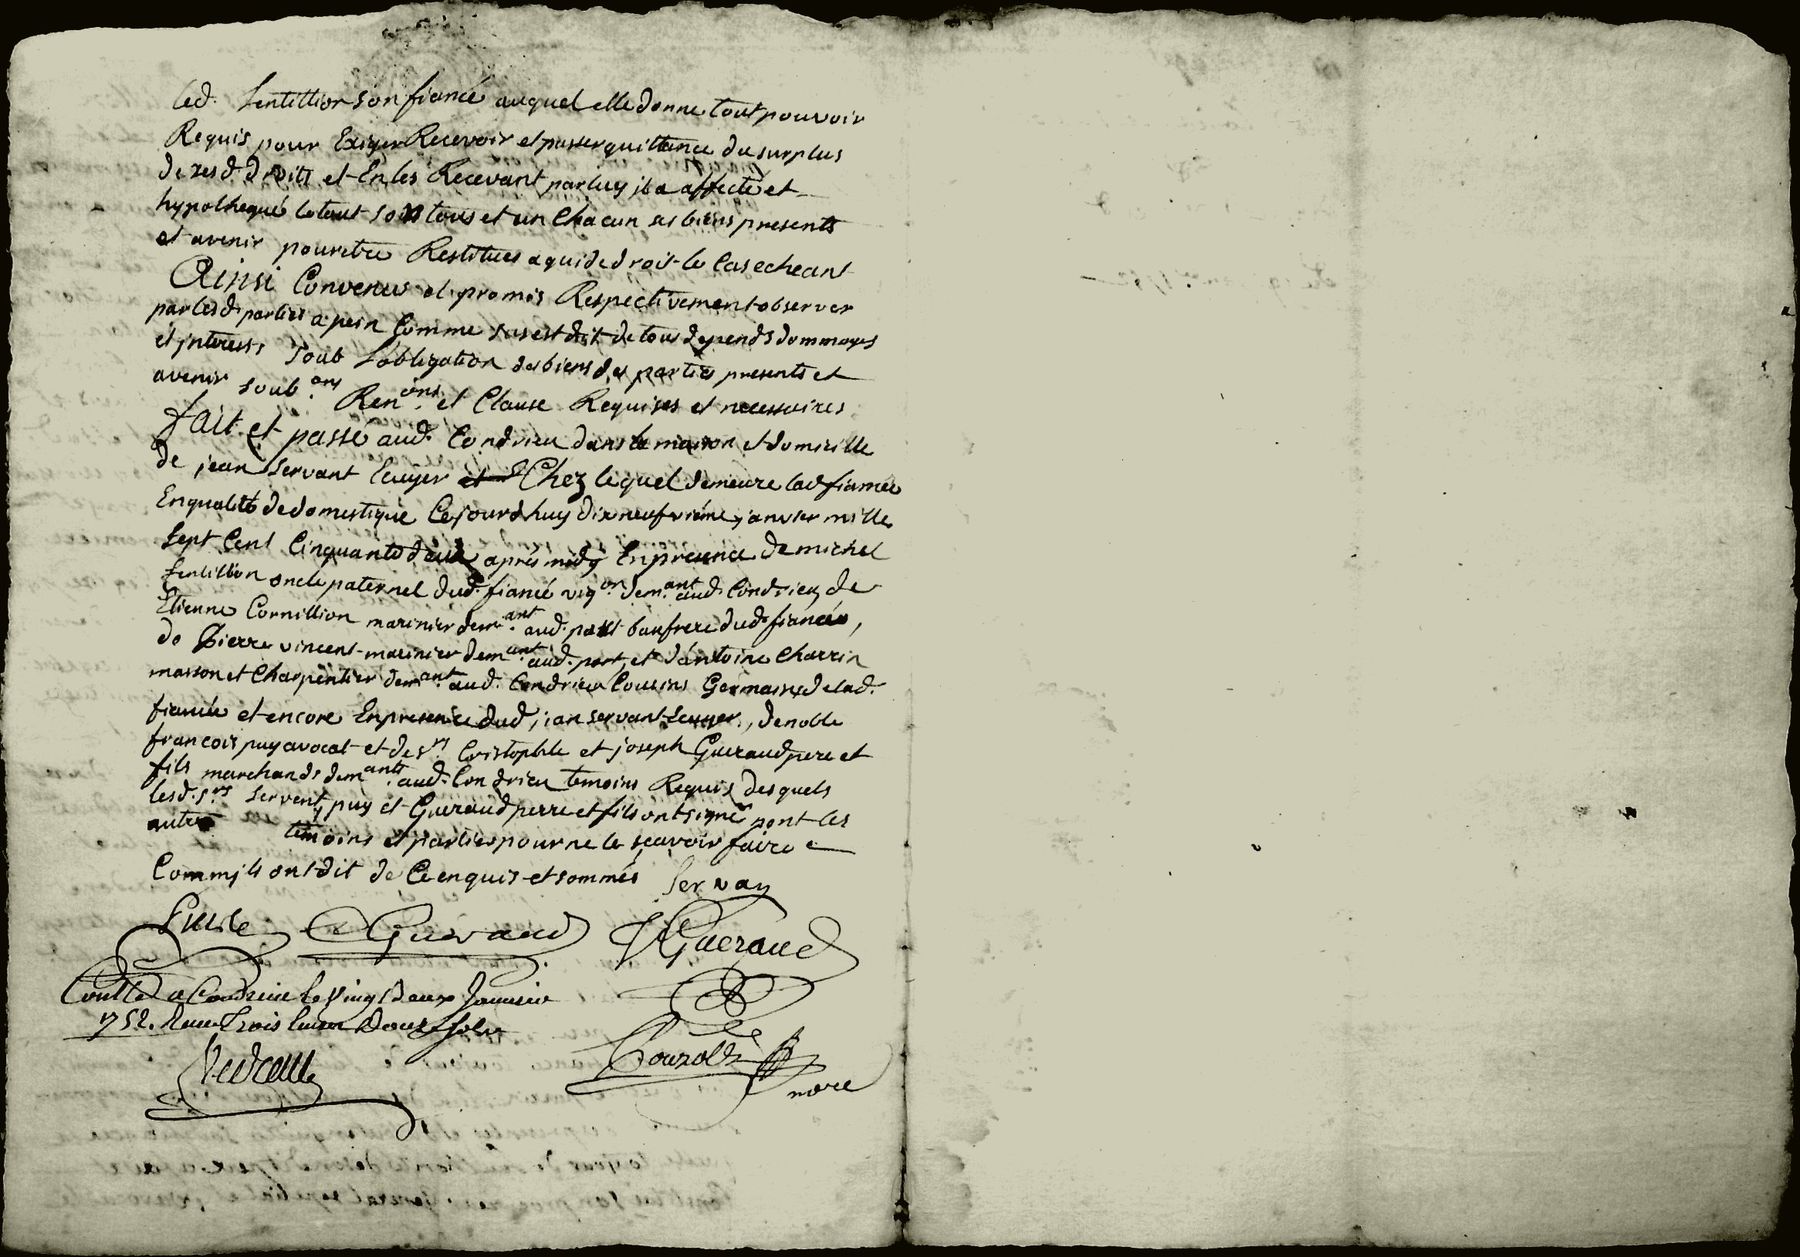 led. Sentillion son fiancé auquel elle donne tout pouvoir
Requis pour Exiger Recevoir et passer quittance du surplus
de sesd. droits et En les Recevant par luy il a affecté et
hypothequé le tout sur tous et un Chacun ses biens presents
et avenir pour etre Restitues a qui de droit le Cas echeant
Ainsi Convenus et promis Respectivement observer
par lesd. parties a pein Comme sus est dit de tous depends dommages
et jnterests soub L'obligation des biens des parties presents et
avenir soub.ons Ren.ons et Clause Requises et necessaires
fait et passé aud. Condrieu dans la maison et domicille
de jean Servant Ecuyer Chez lequel demeure lad fiancée
En qualité de domestique Ce jourdhuy dixneufvieme janvier mille
sept Cent Cinquante deux après midy En presence de michel
Sentillion oncle paternel dud. fiancé vig.on dem.ant aud. Condrieu de
Etienne Cornillion marinier dem.ant aud. port baufrere dud. fiancée,
de Pierre vincent marinier dem.ant aud. port et d'antoine Charrin
masson et Charpentier dem.ant aud. Condrieu Cousins Germains de lad.
fiancée et encore En presence dud. jean Servant Ecuyer, de noble
francois puy avocat et de s.rs Cristophle et joseph Gueraud pere et
fils marchands dem.ants aud. Condrieu temoins Requis desquels
lesd. s.rs Servent puy et Gueraud perre et fils ont signé non les
autres temoins et parties pour ne le scavoir faire
Comm jls ont dit de Ce enquis et sommés Servan
Gueraud J Gueraud
Conttlé a Condrieu le vingt deux Janvier
1752. Reçu Trois livres Douze sols
nore